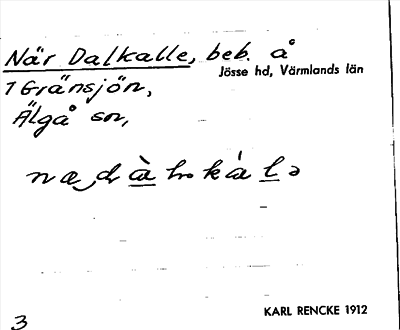 När Dalkalle, beb. å
Jösse hd, Värmlands län
1 Gränsjön,
Älgå sn,
KARL RENCKE 1912
3